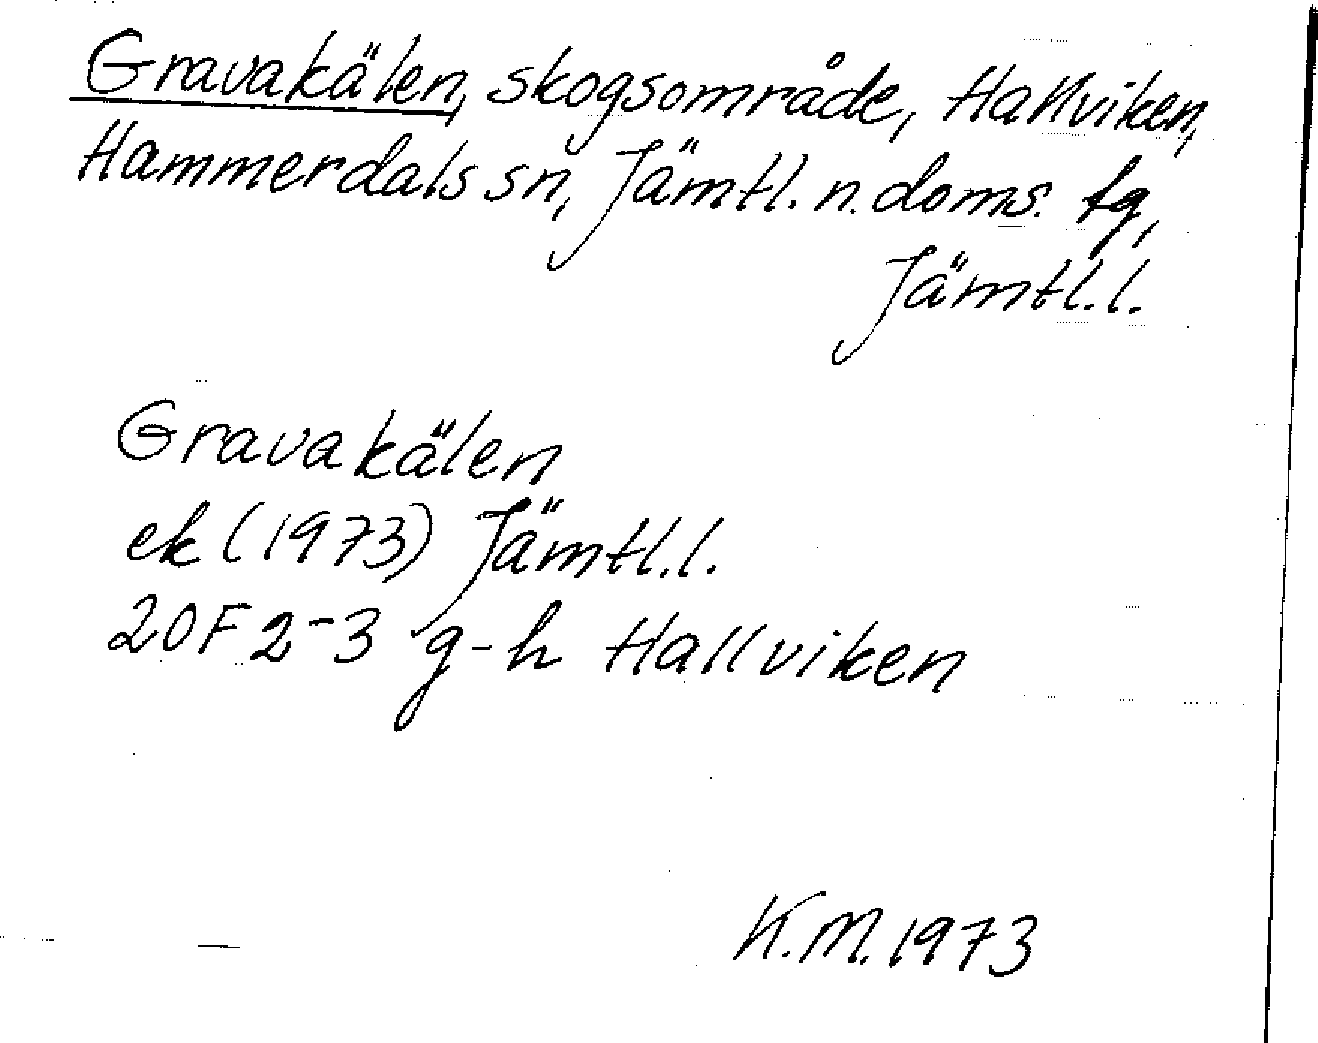 Gravakälen, skogsområde, Hallviken,
Hammerdals sn, Jämtl. n. doms. tg,
Jämtl. l.
Gravakälen
ek (1973) Jämtl. l.
20F 2-3 g-h Hallviken
K.M. 1973